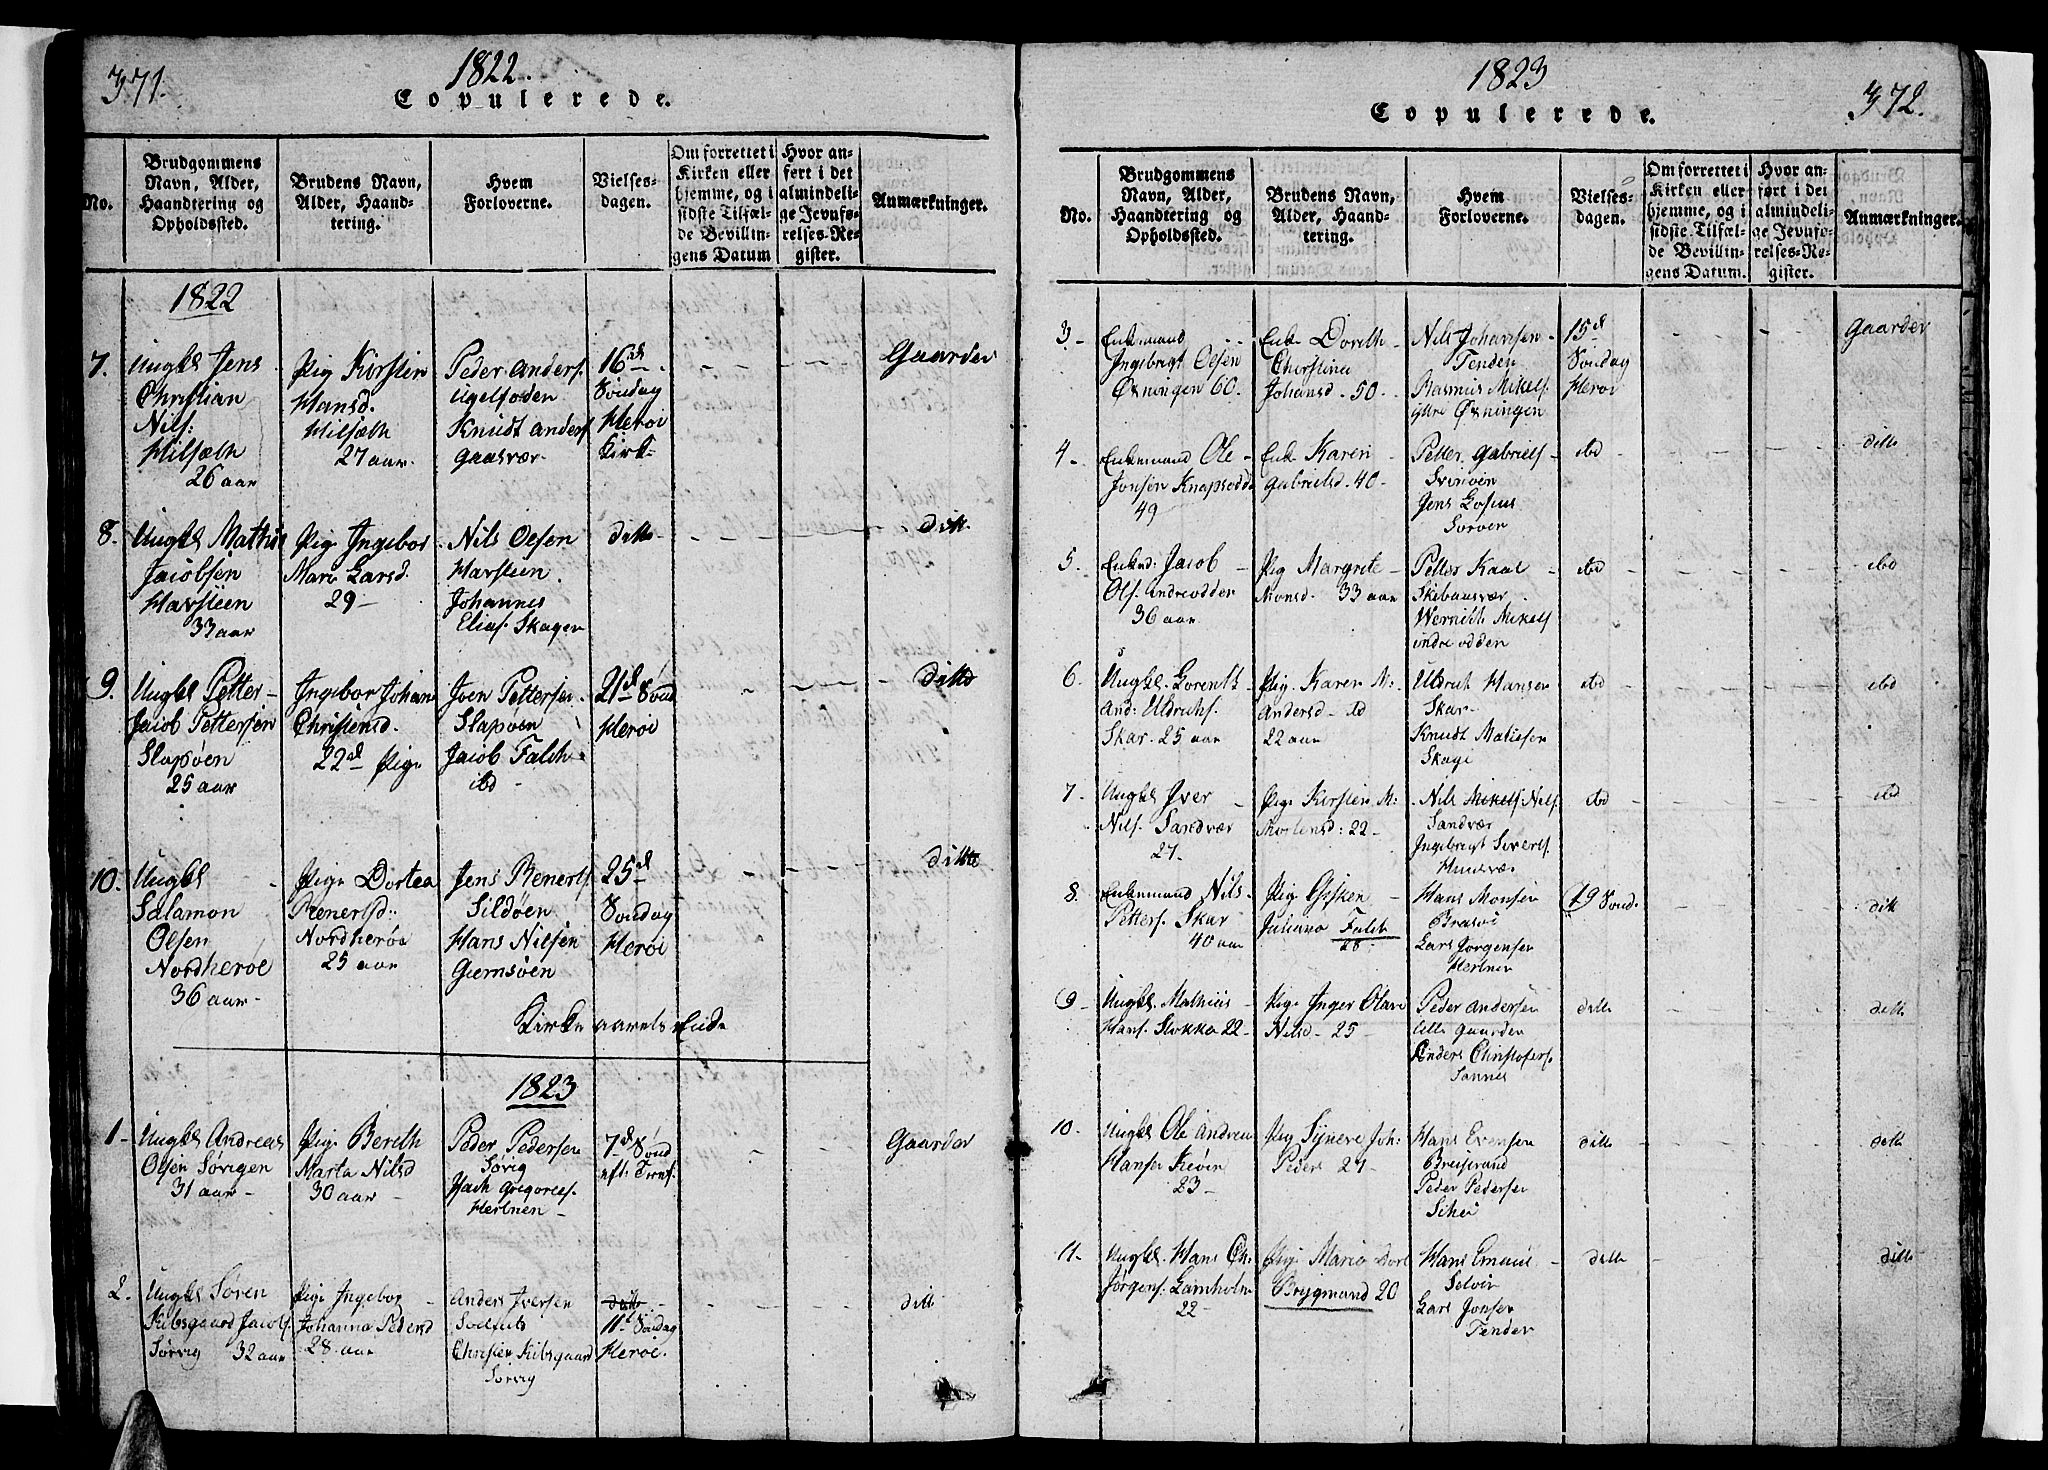 371.
1822.
Copulerede.
No.
Brudgommens
Navn, Alder,
Haandtering og
Opholdssted.
Brudens Navn,
Alder, Haand-
tering.
Hvem
Forloverne.
Vielses-
dagen.
Om forrettet i
Kirken eller
hjemme, og i
sidste Tilfæl-
de Bevillin-
gens Datum
Hvor an-
ført i det
almindeli-
ge Jevnfø-
relses-Re-
gister.
Anmærkninger.
1822
7.
Ungkl Jens
Christian
Nils:
Hilsæth
26 aar
Pig Kirstin
Hansd.
Hilsæth
27 aar.
Peder Anders.
Ugelfoden
Knudt Anders
Gaasvær
16d
Søndag
Herøi
Kirk
Gaarder
8.
Ungkl Mathis
Jacobsen
Havsteen
33 aar
Pige Ingebor
Mari Larsd.
29 -
Nils Olsen
Havsteen
Johannes
Elias. Skagen
ditto
ditt
9.
Ungkl Petter
Jacob Pettersen
Slapøen
25 aar
Ingebor Johan
Christensd.
22d Pige
Joen Pettersen
Slapøen
Jacob Falch
ibd -
21d Sønd
Herøi
ditto
10.
Ungkl
Salamon
Olsen
Nordherøe
36 aar -
Pige Dortea
Renertsd:
Nordherøe
25 aar
Jens Renerts.
Sildøen
Hans Nilsen
Gjemsøen
25d
Søndag
Herøi
ditto
Kirke aarets Ende
1823
1 -
Ungkl Andreas
Olsen Sørvigen
31 aar -
Pige Bereth
Marta Nilsd
30 aar -
Peder Pedersen
Sørvig
Isach Gregories.
Herlnen -
7d Sønd
eft: Trinit.
Gaarder
2.
Ungkl Søren
Kibsgaard Jacobs.
Sørvig 32 aar
Pige Ingebor
Johanna Pedersd
28 aar
Anders Iversen
Christen Kibsgaard
Sørvig
ditto
11d Søndag
Herøe.
ditt
1823
372.
Copulerede.
No.
Brudgommens
Navn, Alder,
Haandtering og
Opholdssted.
Brudens Navn,
Alder, Haand-
tering.
Hvem
Forloverne.
Vielses-
dagen.
Om forrettet i
Kirken eller
hjemme, og i
sidste Tilfæl-
de Bevillin-
gens Datum.
Hvor an-
ført i det
almindeli-
ge Jevnfø-
relses-Re-
gister.
Anmærkninger.
3 -
Enkemand
Ingebrigt Olsen
Øxningen 60.
Enke Doreth
Christina
Johansd. 50 -
Nils Johansen
Tenden
Rasmus Mikels.
ytre Øxningen
15d
Søndag
Herøi
Gaarder
4 -
Enkemand Ole
Jonsen Knapsodde
49
Enke Karen
Gabrielsd. 40 -
Petter Gabriels -
Svinøen
Jens
ibd
ditto
5
Enkmd: Jacob
Ols. Indreodden
36 aar
Pig Margrete
Monsd. 33 aar
Petter Kaal
Skibaasvær
Mikels
indre odden
ibd
ibd
6
Ungkl. Lorents
And: Uldrichs.
Skar. 25 aar
Pig. Karen M:
Andersd - ibd
22 aar
Uldrik Hansen
Skar -
Knudt Matisen
Skage
ibd
ibd
7 -
Ungkl Iver
Nils. Sandvær
27 -
Pige Kirsten M:
Mortensd: 22 -
Nils Mikels Nils.
Sandvær
Ingebrigt Siverts.
Husvær
ibd
ibd
8.
Enkemand Nils
Petters. Skar
40 aar
Pige Gisken
Juliana Falch
28
Hans Monsen
Brasøi
Lars Jørgensen
Herlner
19 Sønd.
ditt
9
Ungkl. Mathias
Hans. Stokka 22 -
Pige Inger Olave
Nilsd - 25
Peder Andersen
Gaarden
Anders Christofers.
Sannes
ditto
ditto
10.
Ungkl Ole Andrea
Hansen
23 -
Pig Synere Joh:
Peders 27 -
Hans Evensen
Breistrand
Peder Pedersen
ditto
ditto
11.
Ungkl. Hans Ch.
Jørgens. Lamholm
22 -
Pige Maria Dort
Brygmand 20
Hans
Selvær
Lars Jonsen
Tenden
ditto
ditto